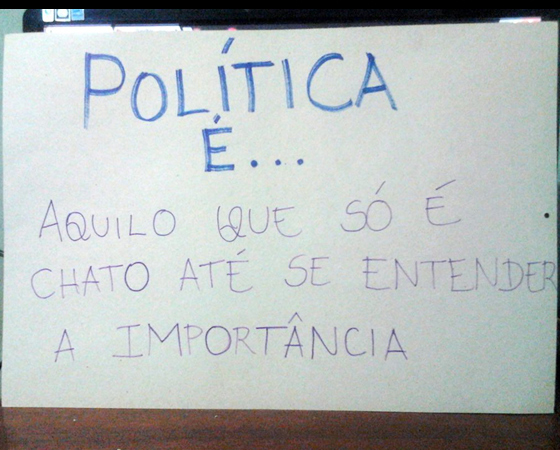 POLÍTICA
É...
AQUILO QUE SÓ É
CHATO ATÉ SE ENTENDER
A IMPORTÂNCIA